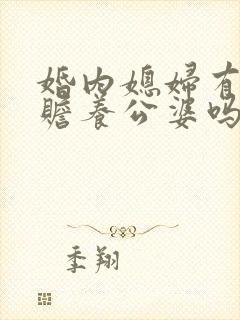 婚内媳妇有
赡养公婆吗
季翔